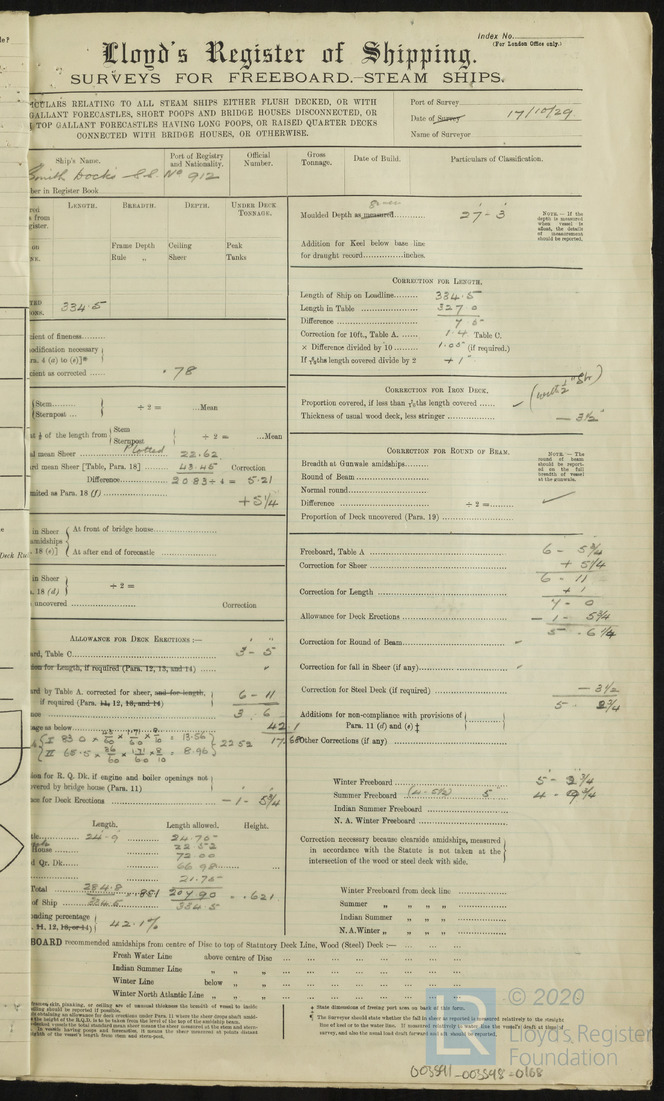 Index No.
(For London Office only.)
Lloyd's Register of Shipping.
SURVEYS FOR FREEBOARD.—STEAM SHIPS.
ICULARS RELATING TO ALL STEAM SHIPS EITHER FLUSH DECKED, OR WITH
GALLANT FORECASTLES, SHORT POOPS AND BRIDGE HOUSES DISCONNECTED, OR
TOP GALLANT FORECASTLES HAVING LONG POOPS, OR RAISED QUARTER DECKS
CONNECTED WITH BRIDGE HOUSES, OR OTHERWISE.
Port of Survey
Date of Survey 17/10/29
Name of Surveyor
Ship's Name. Port of Registry and Nationality. Official Number. Gross Tonnage. Date of Build. Particulars of Classification.
Smith Docks S.S. No 912
ber in Register Book
LENGTH. BREADTH. DEPTH. UNDER DECK TONNAGE.
Frame Depth Ceiling Peak
Rule „ Sheer Tanks
334.5
cient of fineness
odification necessary
ra. 4 (a) to (e)]*
cient as corrected .78
Stem
Sternpost ÷ 2 = ...Mean
at ⅛ of the length from Stem Sternpost ÷ 2 = ...Mean
Plotted
al mean Sheer 22.62
rd mean Sheer [Table, Para. 18] 43.45 Correction
Difference 20.83 ÷ 4 = 5.21
mited as Para. 18 (f) + 5¼
in Sheer amidships 18 (e)] At front of bridge house
At after end of forecastle
in Sheer
. 18 (d) ÷ 2 =
uncovered Correction
ALLOWANCE FOR DECK ERECTIONS :—
rd, Table C 3 - 5
ion for Length, if required (Para. 12, 13, and 14)
rd by Table A, corrected for sheer, and for length,
if required (Para. 11, 12, 13, and 14) 6 - 11
nce 3 . 6
age as below 42.1
22.52
ion for R. Q. Dk. if engine and boiler openings not
overed by bridge house (Para. 11)
ce for Deck Erections - 1 - 5¾
Length. Length allowed. Height.
24.9 24.75
House 22.52
72.00
d Qr. Dk. 66.98
21.75
Total 284.8 .851 207.90 = .621
of Ship 334.5 334.5
nding percentage
. 11, 12, 13, or 14) 42.1%
Moulded Depth as measured 27 - 3
given
NOTE.—If the depth is measured when vessel is afloat, the details of measurement should be reported.
Addition for Keel below base line
for draught record inches.
CORRECTION FOR LENGTH.
Length of Ship on Loadline 334.5
Length in Table 327.0
Difference 7.5
Correction for 10ft., Table A. 1.4 Table C.
× Difference divided by 10 1.05" (if required.)
If 6/10ths length covered divide by 2 + 1"
CORRECTION FOR IRON DECK.
Proportion covered, if less than 7/10ths length covered
Thickness of usual wood deck, less stringer - 3½"
CORRECTION FOR ROUND OF BEAM.
Breadth at Gunwale amidships
Round of Beam
Normal round
Difference ÷ 2 =
Proportion of Deck uncovered (Para. 19)
NOTE.—The round of beam should be reported on the full breadth of vessel at the gunwale.
Freeboard, Table A 6 - 5¾
Correction for Sheer + 5¼
6 - 11
Correction for Length + 1
7 - 0
Allowance for Deck Erections - 1 - 5¾
5 - 6¼
Correction for Round of Beam
Correction for fall in Sheer (if any)
Correction for Steel Deck (if required) - 3½
5 . 2¾
Additions for non-compliance with provisions of
Para. 11 (d) and (e) ‡
Other Corrections (if any)
Winter Freeboard 5 - 2¾
Summer Freeboard (4 - 5½) 5" 4 - 9¾
Indian Summer Freeboard
N. A. Winter Freeboard
Correction necessary because clearside amidships, measured
in accordance with the Statute is not taken at the
intersection of the wood or steel deck with side.
Winter Freeboard from deck line
Summer „ „ „
Indian Summer „ „ „
N. A. Winter „ „ „ „
BOARD recommended amidships from centre of Disc to top of Statutory Deck Line, Wood (Steel) Deck :—
Fresh Water Line above centre of Disc
Indian Summer Line „ „
Winter Line below „
Winter North Atlantic Line „ „
‡ State dimensions of freeing port area on back of this form.
© 2020
LR
Lloyd's Register
Foundation
003541-003548-0168